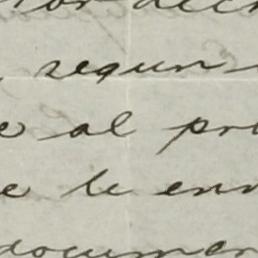 , segun
al pr
e le env
documen